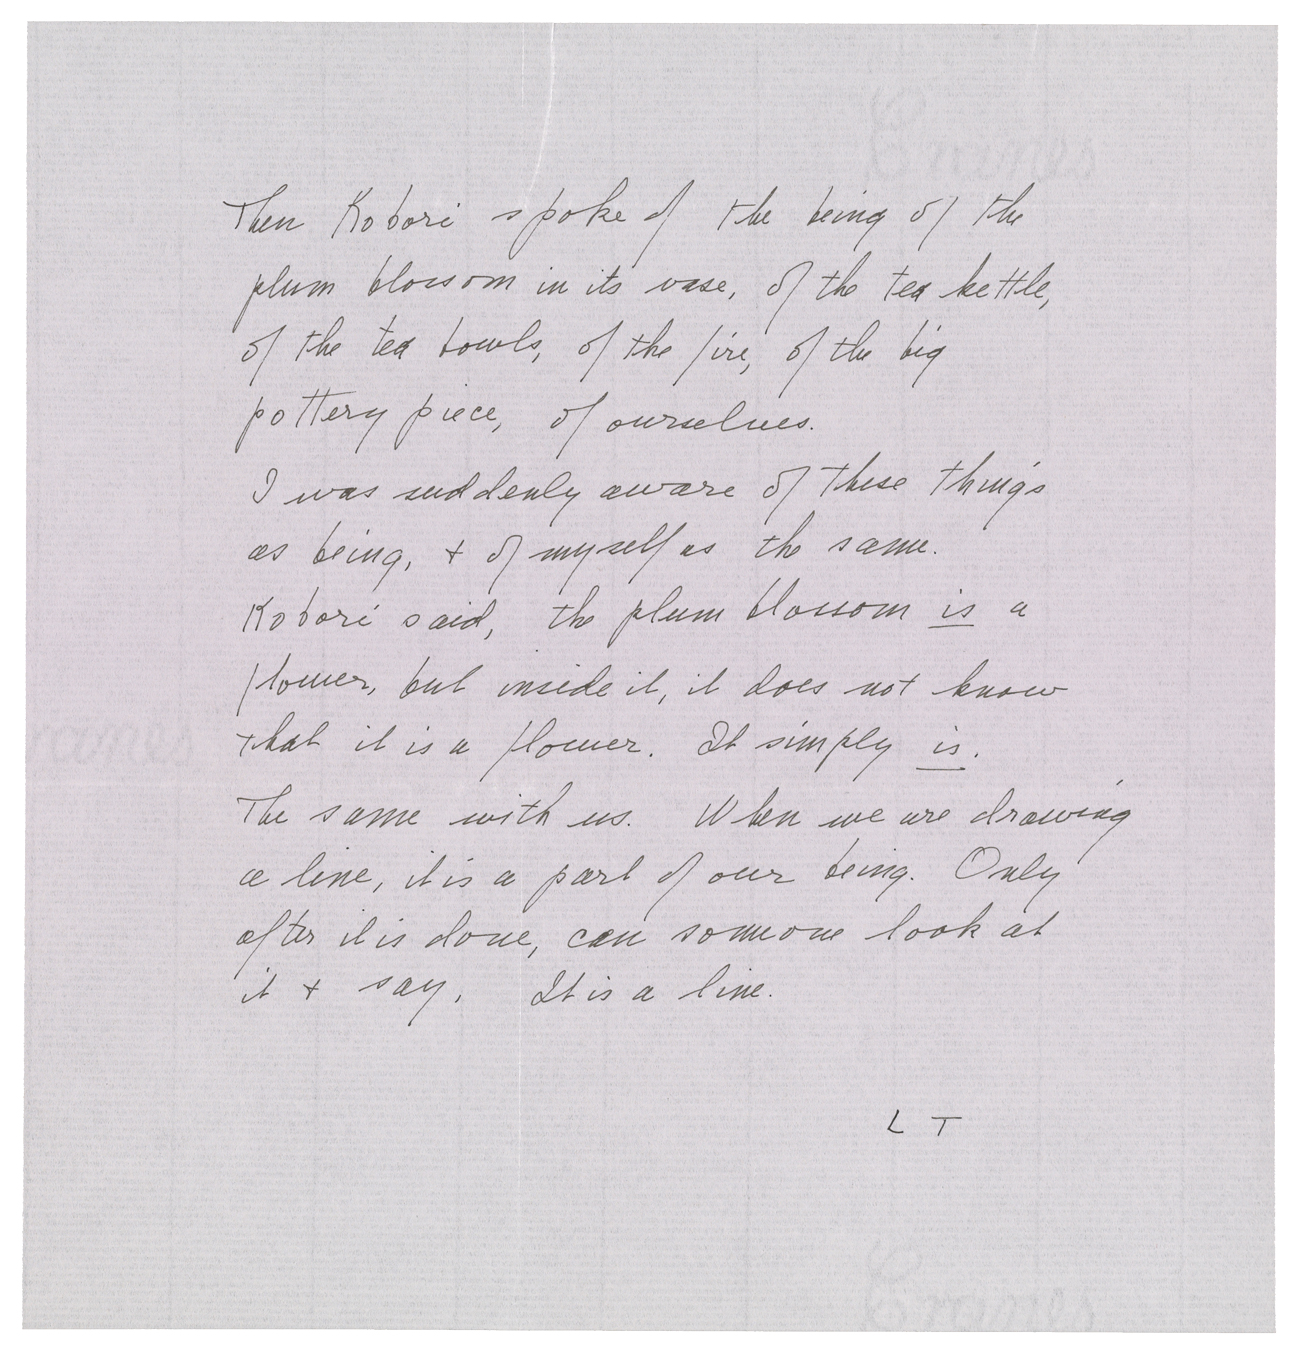 Then Kobori spoke of the being of the
plum blossom in its vase, of the tea kettle,
of the tea bowls, of the fire, of the big
pottery piece, of ourselves.
I was suddenly aware of these things
as being, + of myself as the same.
Kobori said, the plum blossom is a
flower, but inside it, it does not know
that it is a flower. It simply is.
The same with us. When we are drawing
a line, it is a part of our being. Only
after it is done, can someone look at
it + say, It is a line.
L T
Cranes
ranes
Cranes